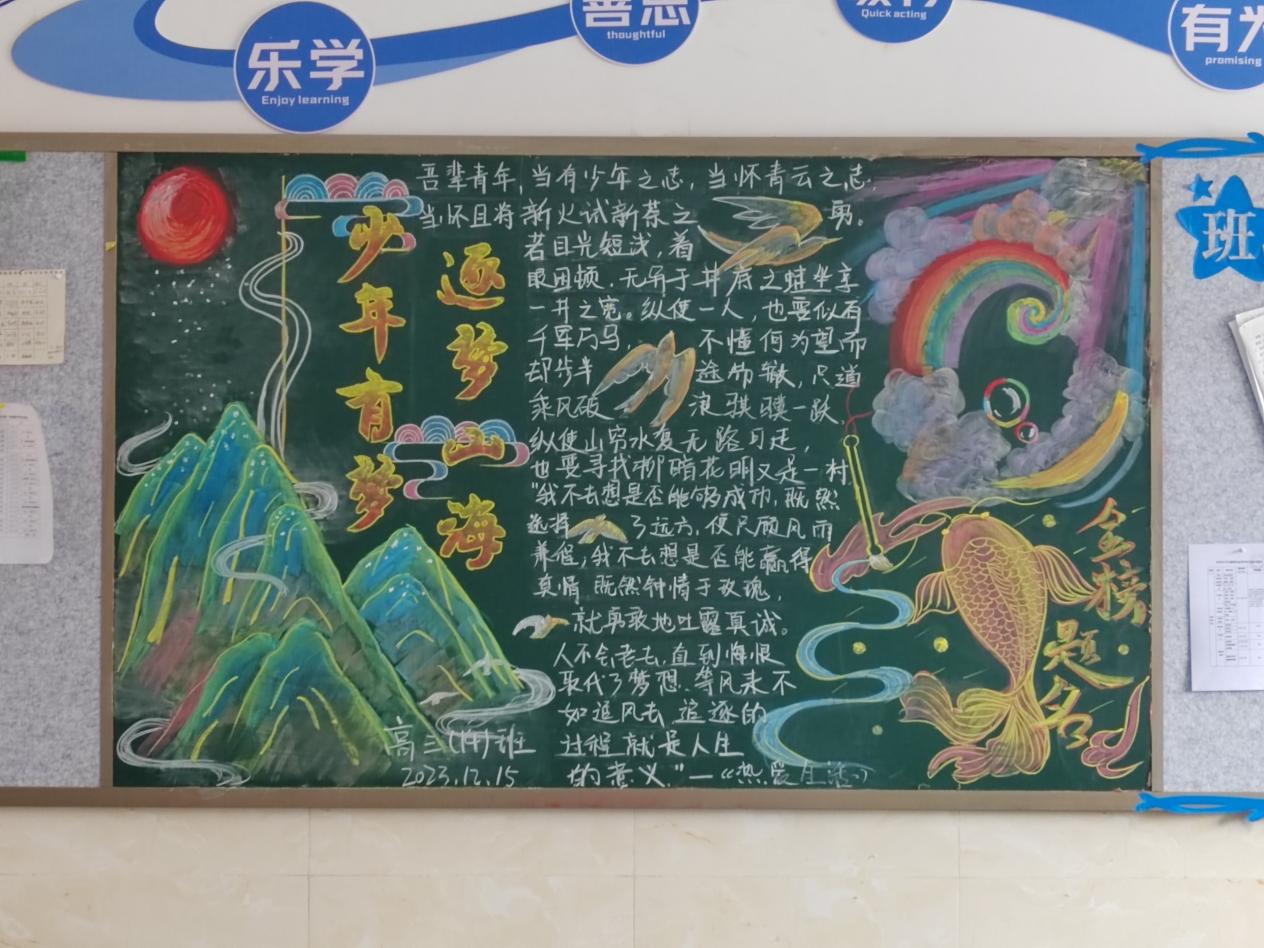 乐学
Enjoy learning
善思
thoughtful
Quick acting
有为
promising
班
少年有梦
逐梦山海
吾辈青年,当有少年之志,当怀青云之志,
当怀且将新火试新茶之勇。
若目光短浅,着
眼困顿,无异于井底之蛙坐享
一井之宽。纵使一人,也要似有
千军万马,不懂何为望而
却步半途而辙,只道
乘风破浪骐骥一跃,
纵使山穷水复无路可走,
也要寻找柳暗花明又是一村
"我不去想是否能够成功,既然
选择了远方,便只顾风雨
兼程;我不去想是否能赢得
真情 既然钟情于玫瑰,
就勇敢地吐露真诚。
人不会老去,直到悔恨
取代了梦想.等风来不
如追风去 追逐的
过程 就是人生
的意义"—《热爱生活》
金榜题名
高三班
2023.12.15